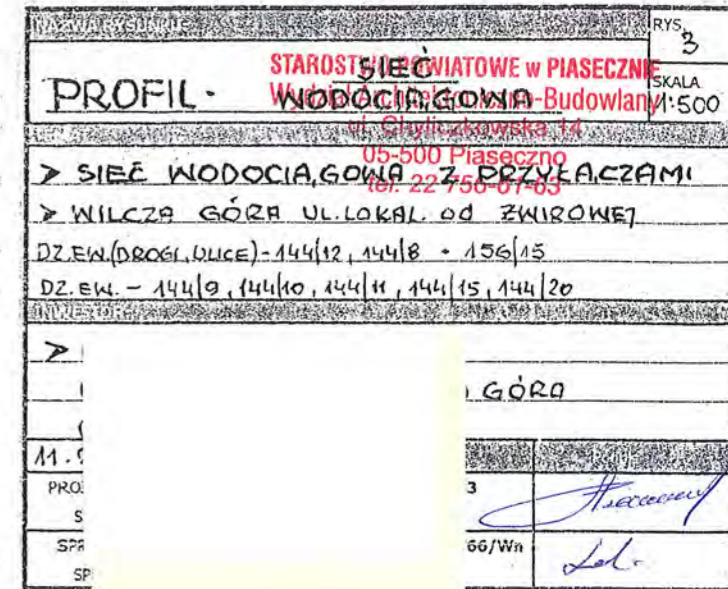 NAZWA RYSUNKU
RYS.
3
PROFIL - SIEĆ
WODOCIĄGOWA
SKALA
1:500
STAROSTWO POWIATOWE w PIASECZNIE
Wydział Architektoniczno-Budowlany
ul. Chyliczkowska 14
05-500 Piaseczno
tel. 22 756-61-63
> SIEĆ WODOCIĄGOWA Z PRZYŁĄCZAMI
> WILCZA GÓRA UL. LOKAL. Od ŻWIROWEJ
DZ.EW.(DROGI, ULICE) - 144/12, 144/8 - 156/15
DZ. EW. - 144/9, 144/10, 144/11, 144/15, 144/20
INWESTOR
>
GÓRA
11.
PRO
3
S
SPR
66/Wn
SP